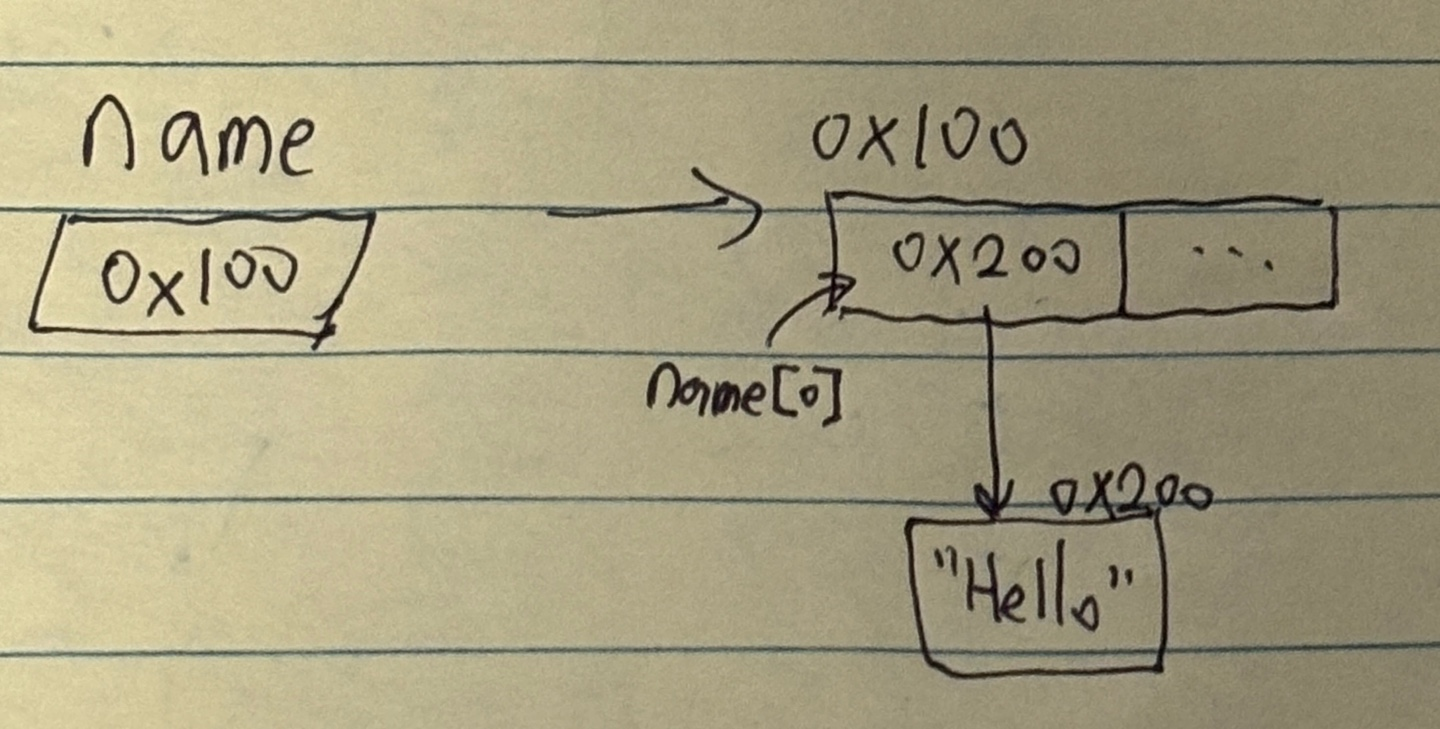 name
0x100
0x100
0x200
...
name[0]
0x200
"Hello"